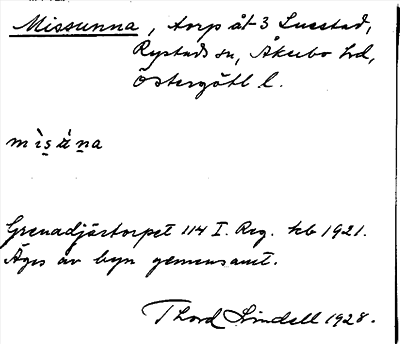 Missunna, torp åt 3 Lusstad,
Rystads sn, Åkerbo hd,
Östergötl l.
mìsúna
Grenadjärtorpet 114 I. Reg. kb 1921.
Äges av byn gemensamt.
Thord Lindell 1928.